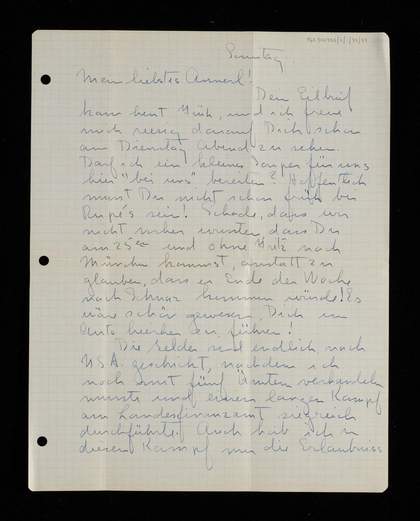 Sonntag
Mein liebstes Annerl!
Dein Eilbrief
kam heut früh, und ich freue
mich riesig darauf Dich schon
am Dienstag Abend zu sehen.
Darf ich ein kleines Souper für uns
hier "bei uns" bereiten? Hoffentlich
musst Du nicht schon früh bei
Rupé's sein! Schade, dass wir
nicht sicher wussten, dass Du
am 25ten und ohne
München kommst, anstatt zu
glauben, dass es Ende der Woche
nach kommen würde! Es
wäre schön gewesen, Dich im
Auto hierher zu führen!
Die Gelder sind endlich nach
USA. geschickt, nachdem ich
noch mit fünf Ämtern verhandeln
musste und einen langen Kampf
am Landesfinanzamt siegreich
durchführte! Auch hab ich in
diesem Kampf nun die Erlaubniss